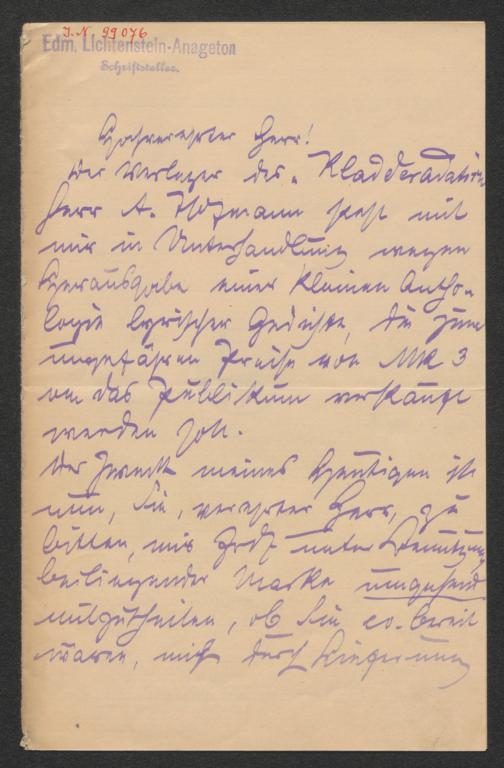 J.N. 99076
Edm. Lichtenstein-Anageton
Schriftsteller.
Hochverehrter Herr!
Der Verleger des „Kladderadatsch
Herr A. Hofmann steht mit
mir in Unterhandlung wegen
Herausgabe einer kleinen Antho-
logie lyrischer Gedichte, die zum
ungefähren Preise von Mk 3
an das Publikum verkauft
werden soll.
Der Zweck meines Heutigen ist
nun, Sie, verehrter Herr, zu
bitten, mir unter Benutzung
beiliegender Marke umgehend
mitzutheilen, ob Sie ev. bereit
wären, mich durch Lieferung